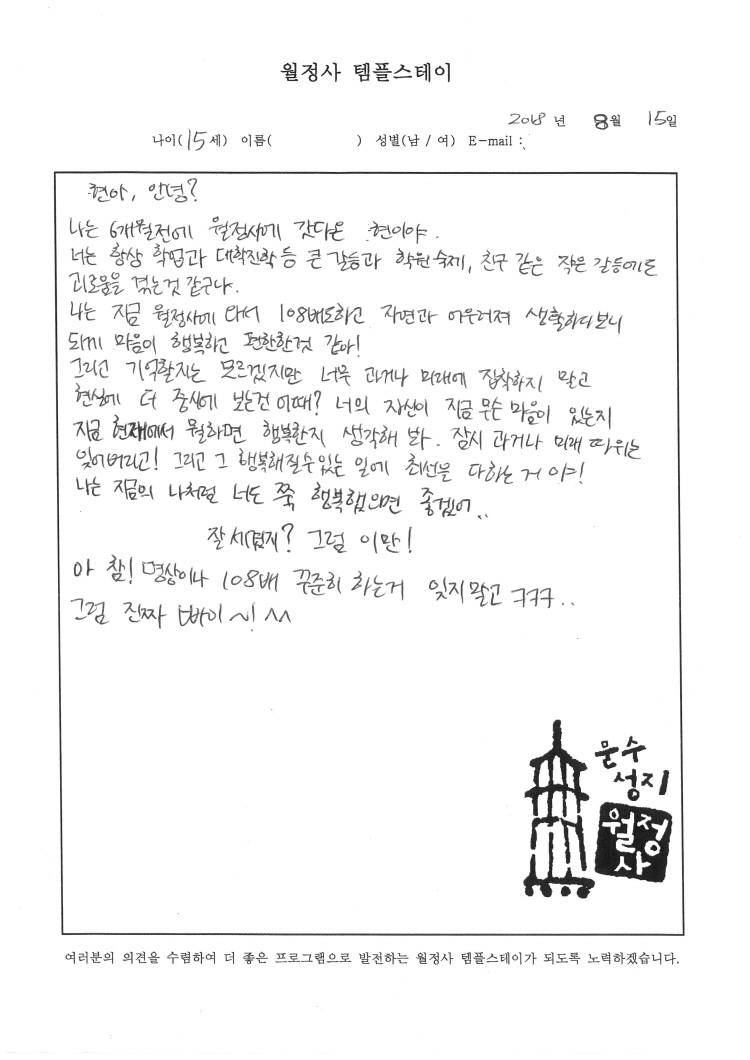 월정사 템플스테이
2018 년 8월 15일
나이(15세) 이름( ) 성별(남 / 여) E-mail :
현아, 안녕?
나는 6개월전에 월정사에 갔다온 현이야.
너는 항상 학업과 대학진학 등 큰 갈등과 학원 숙제, 친구 같은 작은 갈등에도
괴로움을 겪는것 같구나.
나는 지금 월정사에 와서 108배도하고 자연과 어우러져 생활하다보니
되게 마음이 행복하고 편한한것 같아!
그리고 기억할지는 모르겠지만 너무 과거나 미래에 집착하지 말고
현실에 더 중심에 보는건 어때? 너의 자신이 지금 무슨 마음이 있는지
지금 현재에서 뭘하면 행복한지 생각해 봐. 잠시 과거나 미래 따위는
잊어버리고! 그리고 그 행복해질수있는 일에 최선을 다하는 거 야!
나는 지금의 나처럼 너도 쭉 행복했으면 좋겠어..
잘 새겼지? 그럼 이만!
아 참! 명상이나 108배 꾸준히 하는거 잊지말고 ㅋㅋㅋ..
그럼 진짜 빠이~! ^^
문수
성지
월정
사
여러분의 의견을 수렴하여 더 좋은 프로그램으로 발전하는 월정사 템플스테이가 되도록 노력하겠습니다.